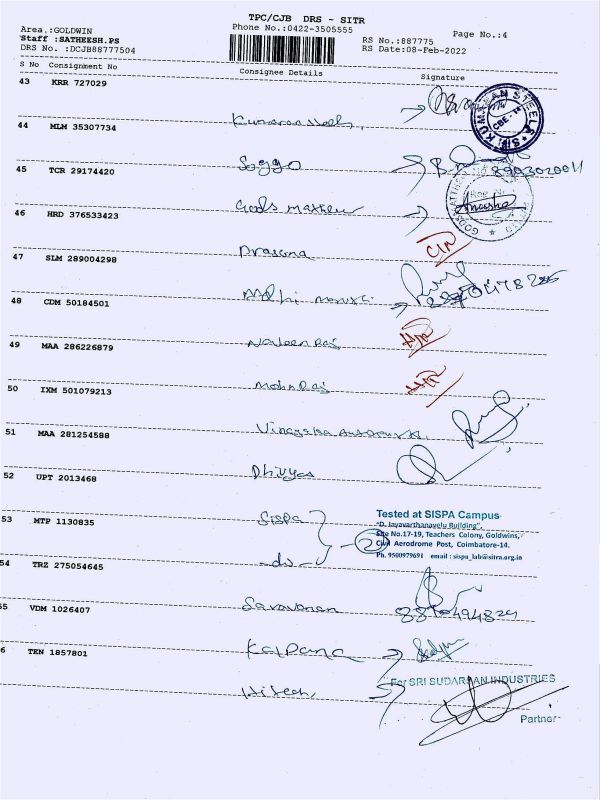 TPC/CJB DRS - SITR
Area.:GOLDWIN Phone No.:0422-3505555 Page No.:4
Staff :SATHEESH.PS RS No.:887775
DRS No. :DCJB88777504 RS Date:08-Feb-2022
S No Consignment No Consignee Details Signature
43 KRR 727029
Kumaran Steels
44 MLM 35307734
45 TCR 29174420
8903020011
46 HRD 376533423
Anusha
47 SLM 289004298
Prasana
48 CDM 50184501
49 MAA 286226879
Naveen Raj
50 IXM 501079213
Mohn Raj
51 MAA 281254588
52 UPT 2013468
Dhivya
53 MTP 1130835
Sispa
Tested at SISPA Campus
"D. Jayavarthanavelu Building",
Site No.17-19, Teachers Colony, Goldwins,
Civil Aerodrome Post, Coimbatore-14.
Ph. 9500979691 email : sispa_lab@sitra.org.in
54 TRZ 275054645
-do-
55 VDM 1026407
Saravanan
6 TEN 1857801
Kalpana
Hitech
For SRI SUDARSAN INDUSTRIES
Partner